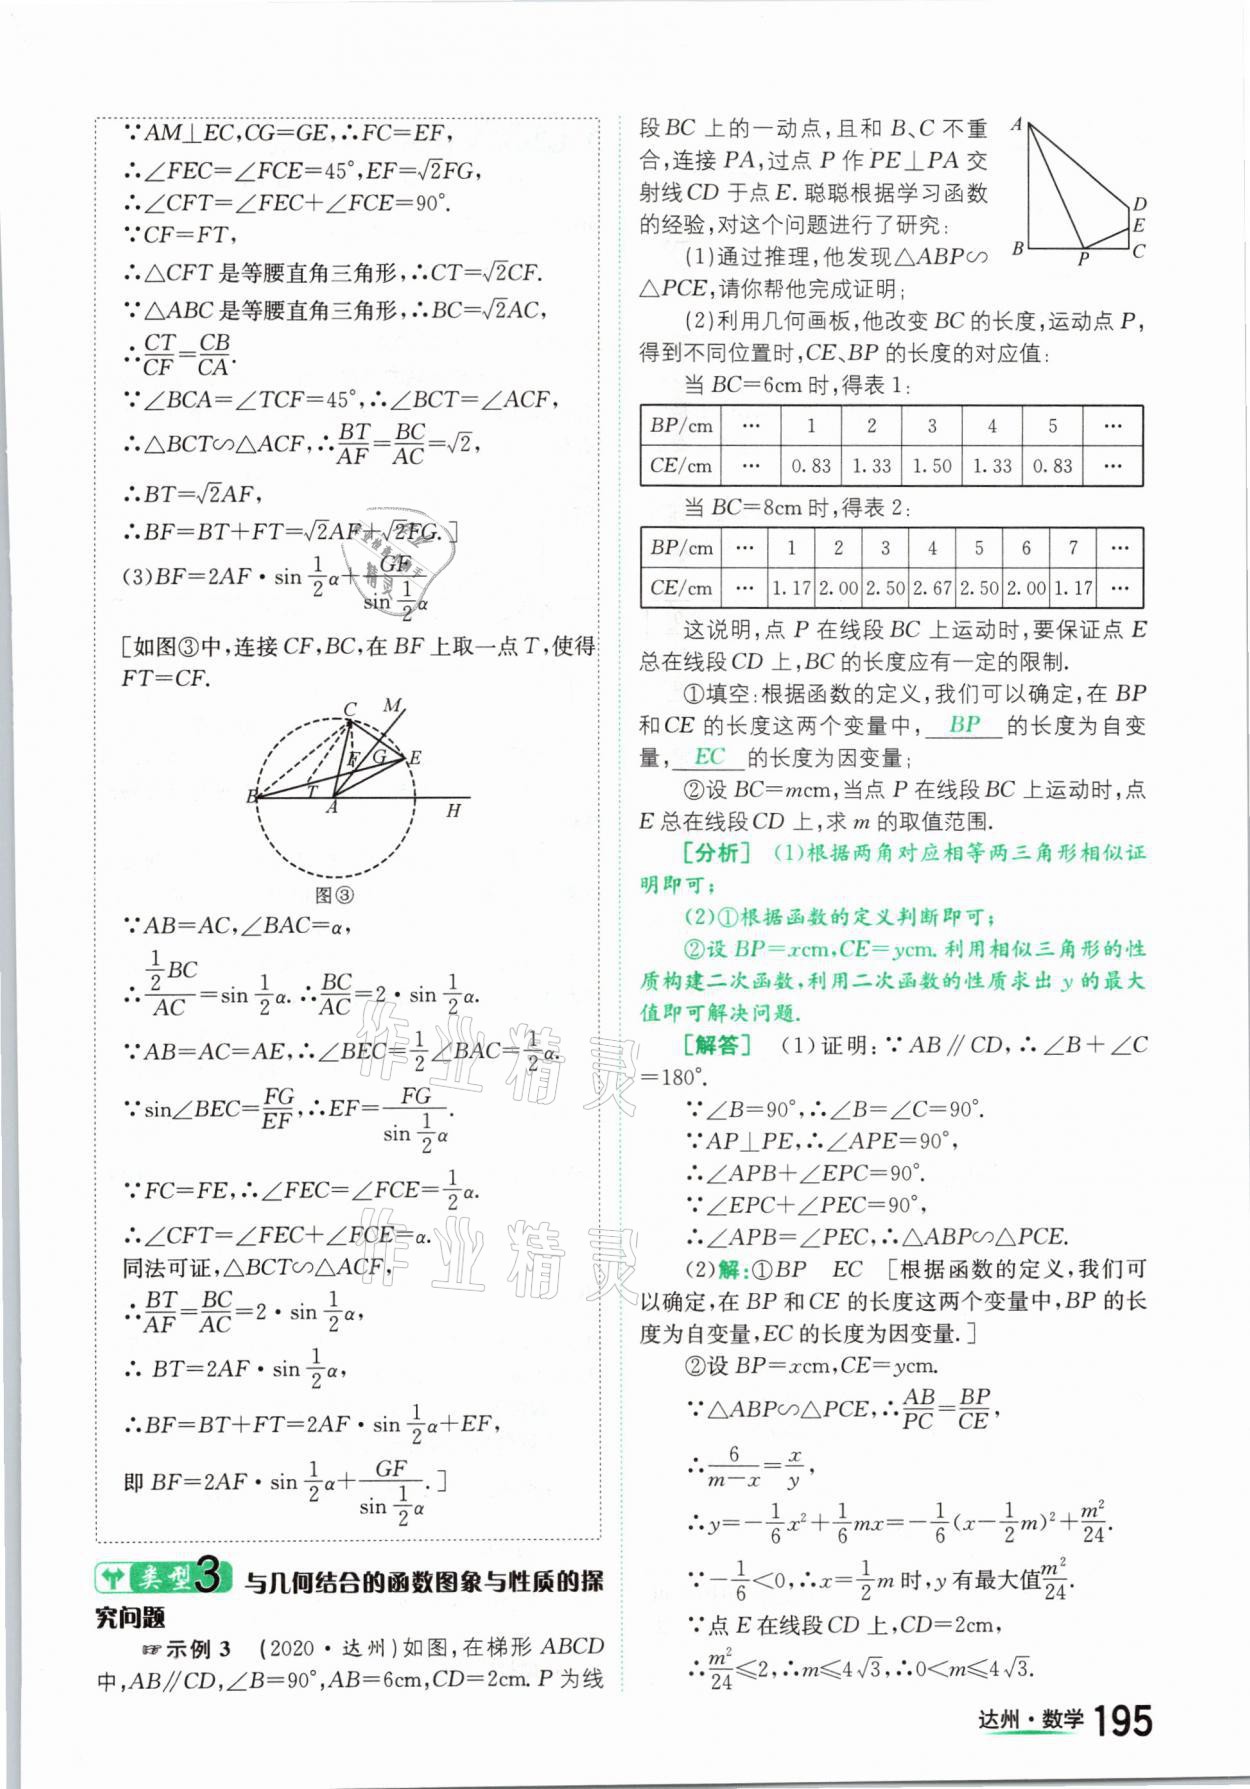 ∵AM⊥EC,CG=GE,∴FC=EF,
∴∠FEC=∠FCE=45°,EF=√2FG,
∴∠CFT=∠FEC+∠FCE=90°.
∵CF=FT,
∴△CFT是等腰直角三角形,∴CT=√2CF.
∵△ABC是等腰直角三角形,∴BC=√2AC,
∴CT/CF=CB/CA.
∵∠BCA=∠TCF=45°,∴∠BCT=∠ACF,
∴△BCT∽△ACF,∴BT/AF=BC/AC=√2,
∴BT=√2AF,
∴BF=BT+FT=√2AF+√2FG.]
(3)BF=2AF·sin 1/2 α+GF/(sin 1/2 α)
[如图③中,连接CF,BC,在BF上取一点T,使得
FT=CF.
C M
F G E
B T A H
图③
∵AB=AC,∠BAC=α,
∴(1/2 BC)/AC=sin 1/2 α.∴BC/AC=2·sin 1/2 α.
∵AB=AC=AE,∴∠BEC=1/2∠BAC=1/2 α.
∵sin∠BEC=FG/EF,∴EF=FG/(sin 1/2 α).
∵FC=FE,∴∠FEC=∠FCE=1/2 α.
∴∠CFT=∠FEC+∠FCE=α.
同法可证,△BCT∽△ACF,
∴BT/AF=BC/AC=2·sin 1/2 α,
∴BT=2AF·sin 1/2 α,
∴BF=BT+FT=2AF·sin 1/2 α+EF,
即BF=2AF·sin 1/2 α+GF/(sin 1/2 α).]
类型3 与几何结合的函数图象与性质的探
究问题
☞示例3 (2020·达州)如图,在梯形ABCD
中,AB∥CD,∠B=90°,AB=6cm,CD=2cm. P为线
段BC上的一动点,且和B、C不重
合,连接PA,过点P作PE⊥PA交
射线CD于点E.聪聪根据学习函数
的经验,对这个问题进行了研究:
A
D
E
B P C
(1)通过推理,他发现△ABP∽
△PCE,请你帮他完成证明;
(2)利用几何画板,他改变BC的长度,运动点P,
得到不同位置时,CE、BP的长度的对应值:
当BC=6cm时,得表1:
BP/cm … 1 2 3 4 5 …
CE/cm … 0.83 1.33 1.50 1.33 0.83 …
当BC=8cm时,得表2:
BP/cm … 1 2 3 4 5 6 7 …
CE/cm … 1.17 2.00 2.50 2.67 2.50 2.00 1.17 …
这说明,点P在线段BC上运动时,要保证点E
总在线段CD上,BC的长度应有一定的限制.
①填空:根据函数的定义,我们可以确定,在BP
和CE的长度这两个变量中, BP 的长度为自变
量, EC 的长度为因变量;
②设BC=mcm,当点P在线段BC上运动时,点
E总在线段CD上,求m的取值范围.
[分析] (1)根据两角对应相等两三角形相似证
明即可;
(2)①根据函数的定义判断即可;
②设BP=xcm,CE=ycm.利用相似三角形的性
质构建二次函数,利用二次函数的性质求出y的最大
值即可解决问题.
[解答] (1)证明:∵AB∥CD,∴∠B+∠C
=180°.
∵∠B=90°,∴∠B=∠C=90°.
∵AP⊥PE,∴∠APE=90°,
∴∠APB+∠EPC=90°.
∵∠EPC+∠PEC=90°,
∴∠APB=∠PEC,∴△ABP∽△PCE.
(2)解:①BP EC [根据函数的定义,我们可
以确定,在BP和CE的长度这两个变量中,BP的长
度为自变量,EC的长度为因变量.]
②设BP=xcm,CE=ycm.
∵△ABP∽△PCE,∴AB/PC=BP/CE,
∴6/(m-x)=x/y,
∴y=-1/6 x²+1/6 mx=-1/6(x-1/2 m)²+m²/24.
∵-1/6<0,∴x=1/2 m时,y有最大值m²/24.
∵点E在线段CD上,CD=2cm,
∴m²/24≤2,∴m≤4√3,∴0<m≤4√3.
达州·数学 195
作业精灵
作业精灵